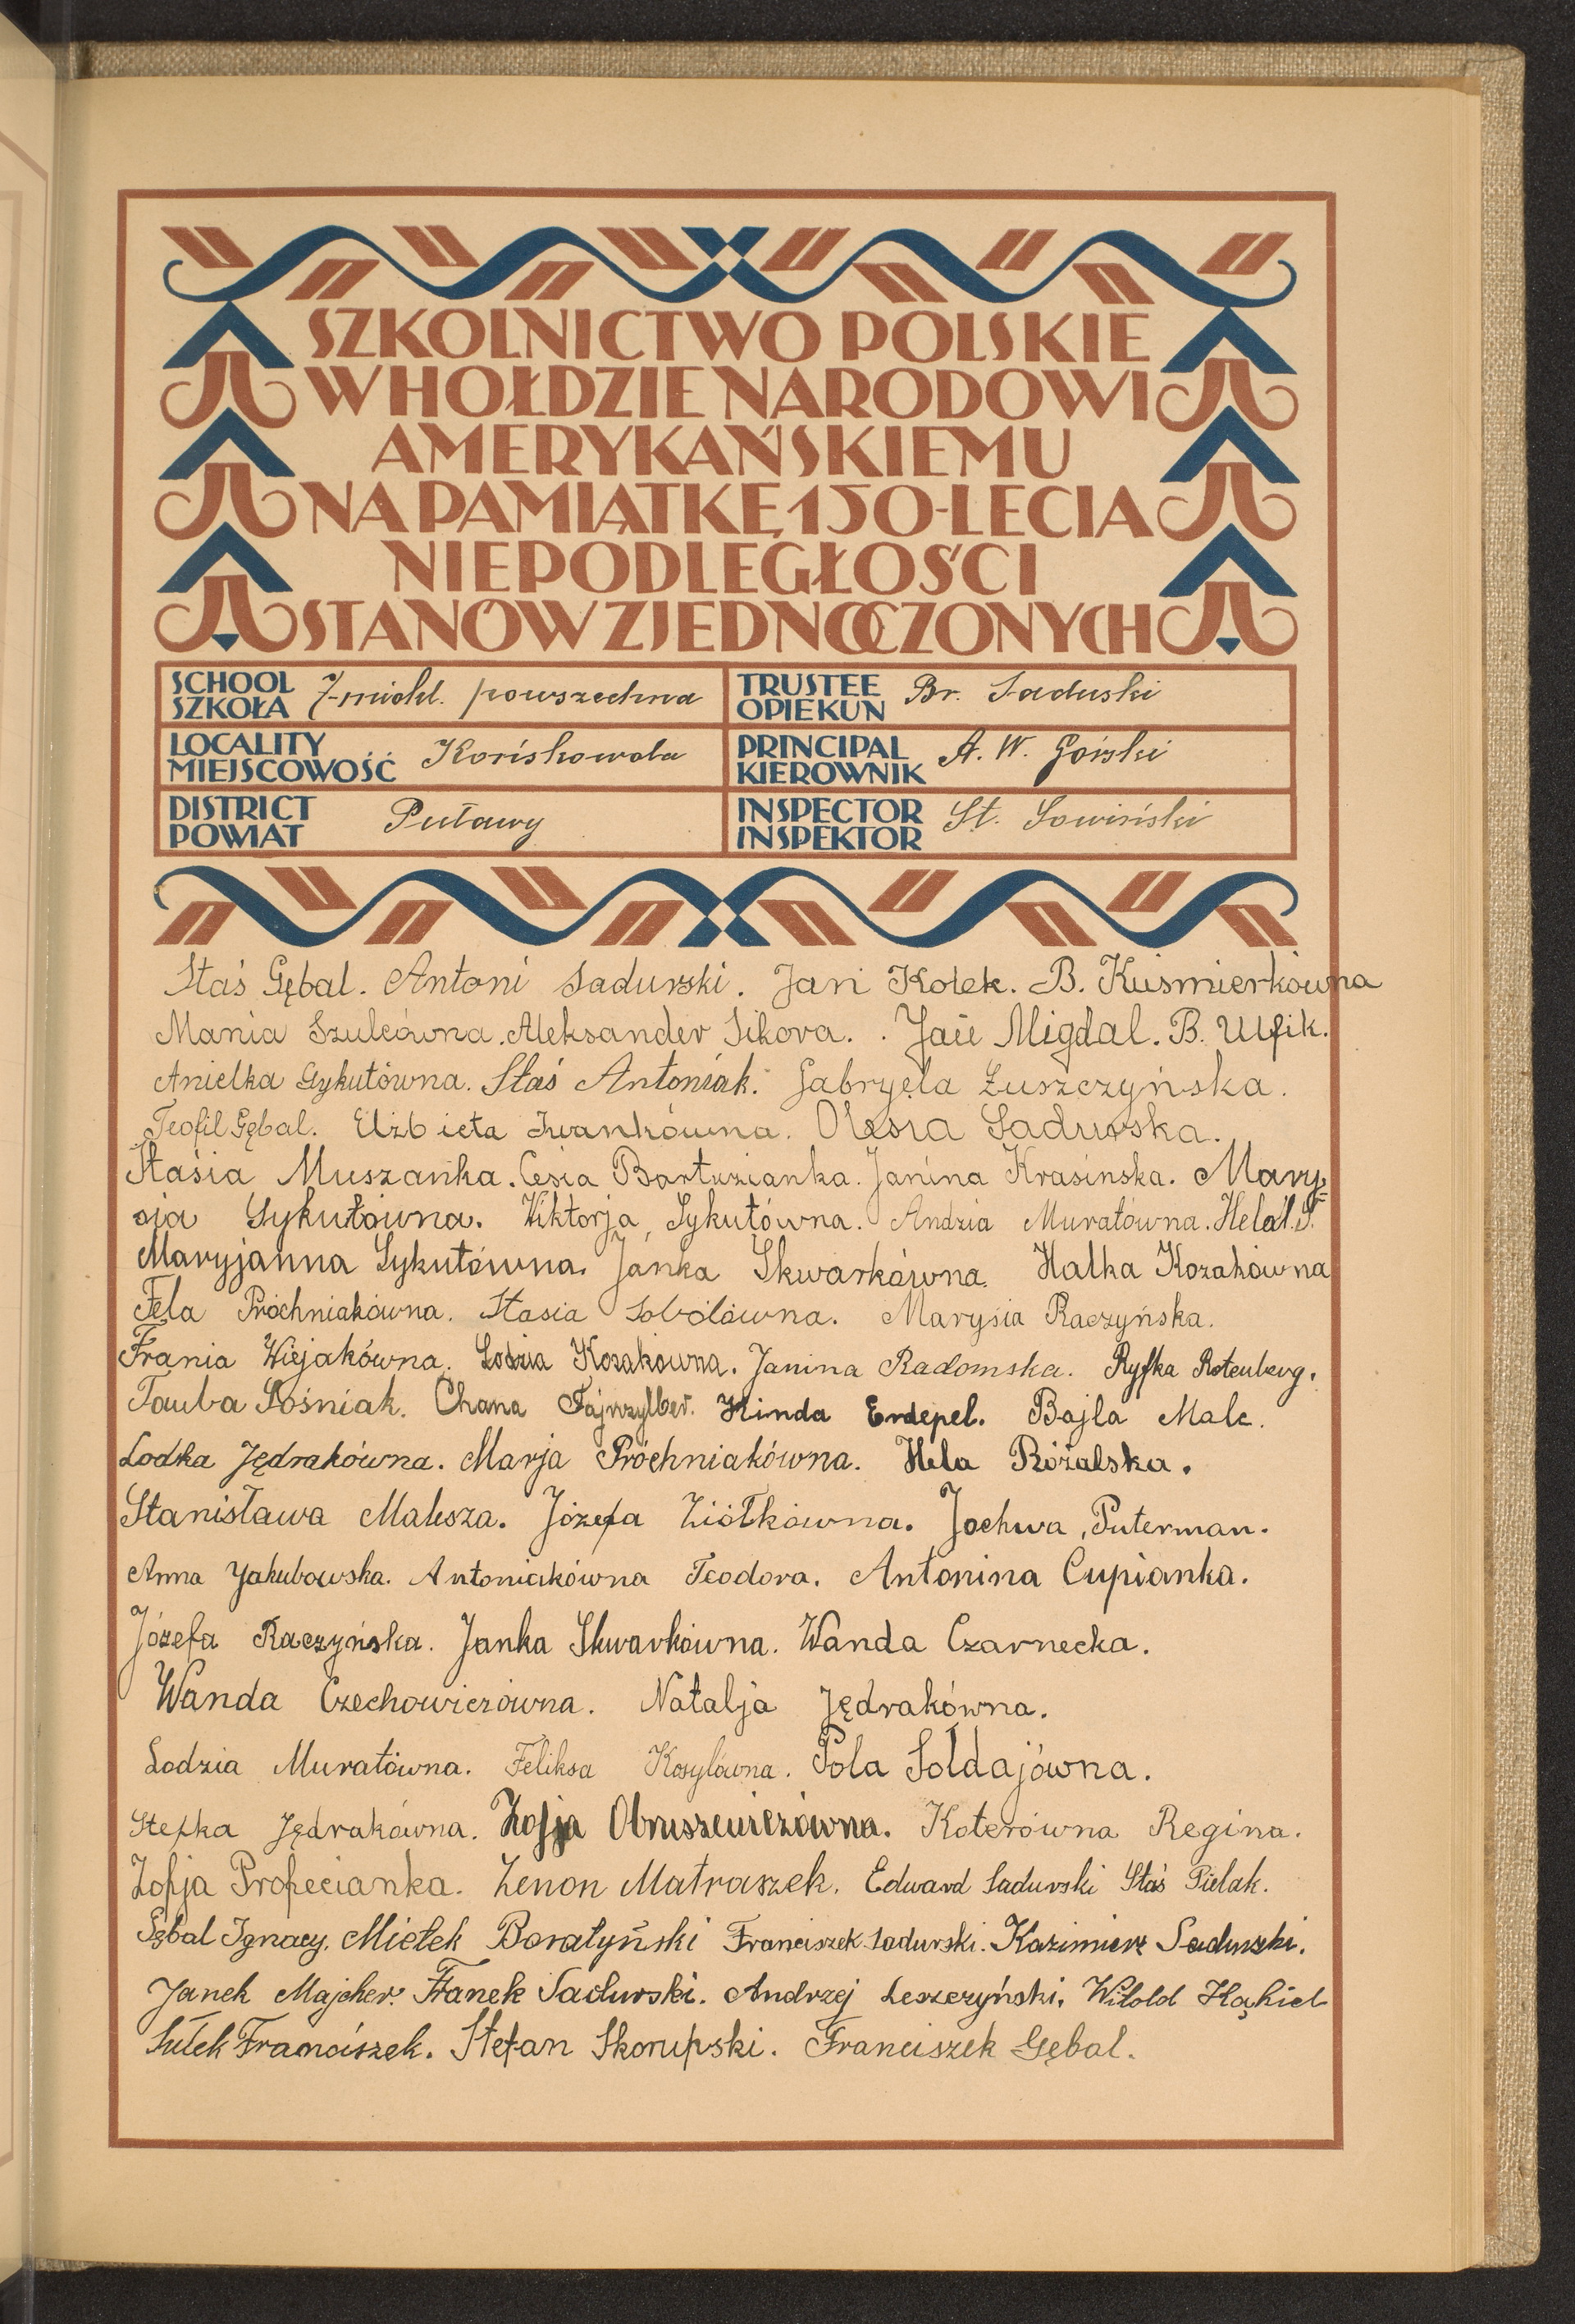 SZKOLNICTWO POLSKIE
W HOŁDZIE NARODOWI
AMERYKAŃSKIEMU
NA PAMIĄTKĘ 150-LECIA
NIEPODLEGŁOŚCI
STANÓW ZJEDNOCZONYCH
SCHOOL
SZKOŁA 7-miokl. powszechna
TRUSTEE
OPIEKUN Br. Saduski
LOCALITY
MIEJSCOWOŚĆ Końskowola
PRINCIPAL
KIEROWNIK A. W. Górski
DISTRICT
POWIAT Puławy
INSPECTOR
INSPEKTOR St. Sowiński
Staś Gębal. Antoni Sadurski. Jan Kołek. B. Kuśmierkówna
Mania Szulcówna. Aleksander Sikora. Migdal. B.
Anielka Sykutówna. Staś Antoniak. Gabryela Łuszczyńska.
Teofil Gębal. Elżbieta Iwankówna. Olesia Sadurska.
Stasia Muszanka. Cesia Bartuzianka. Janina Krasińska. Mary-
sia Sykutówna. Wiktorja Sykutówna. Andzia Muratówna.
Maryjanna Sykutówna. Janka Skwarkówna. Halka Kozakówna
Fela Próchniakówna. Stasia Sobolówna. Marysia Raczyńska.
Frania Wiejakówna. Lodzia Kozakówna. Janina Radomska. Ryfka Rotenberg.
Tauba Łośniak. Chana Fajnzylber. Hinda Erdepel. Bajla Malc.
Lodka Jędrakówna. Marja Próchniakówna. Hela Różalska.
Stanisława Malesza. Józefa Ziółkówna. Jochwa Puterman.
Anna Yakubowska. Antoniakówna Teodora. Antonina Cupianka.
Józefa Raczyńska. Janka Skwarkówna. Wanda Czarnecka.
Wanda Czechowiczówna. Natalja Jędrakówna.
Lodzia Muratówna. Feliksa Kosylówna. Pola Sołdajówna.
Stefka Jędrakówna. Zofja Obruszewiczówna. Koterówna Regina.
Zofja Profecianka. Zenon Matraszek. Edward Sadurski Staś Pielak.
Gębal Ignacy. Mietek Boratyński Franciszek Sadurski. Kazimierz Sadurski.
Janek Majcher. Franek Sadurski. Andrzej Leszczyński. Witold Kąkiel
Sułek Franciszek. Stefan Skorupski. Franciszek Gębal.